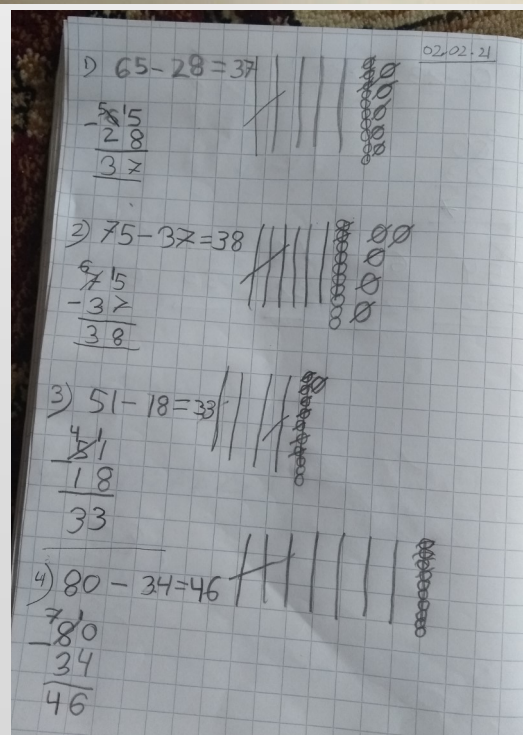 02.02.21
1) 65 - 28 = 37
5 1
- 65
28
37
2) 75 - 37 = 38
6 1
75
- 37
38
3) 51 - 18 = 33
4 1
- 51
18
33
4) 80 - 34 = 46
7 1
- 80
34
46